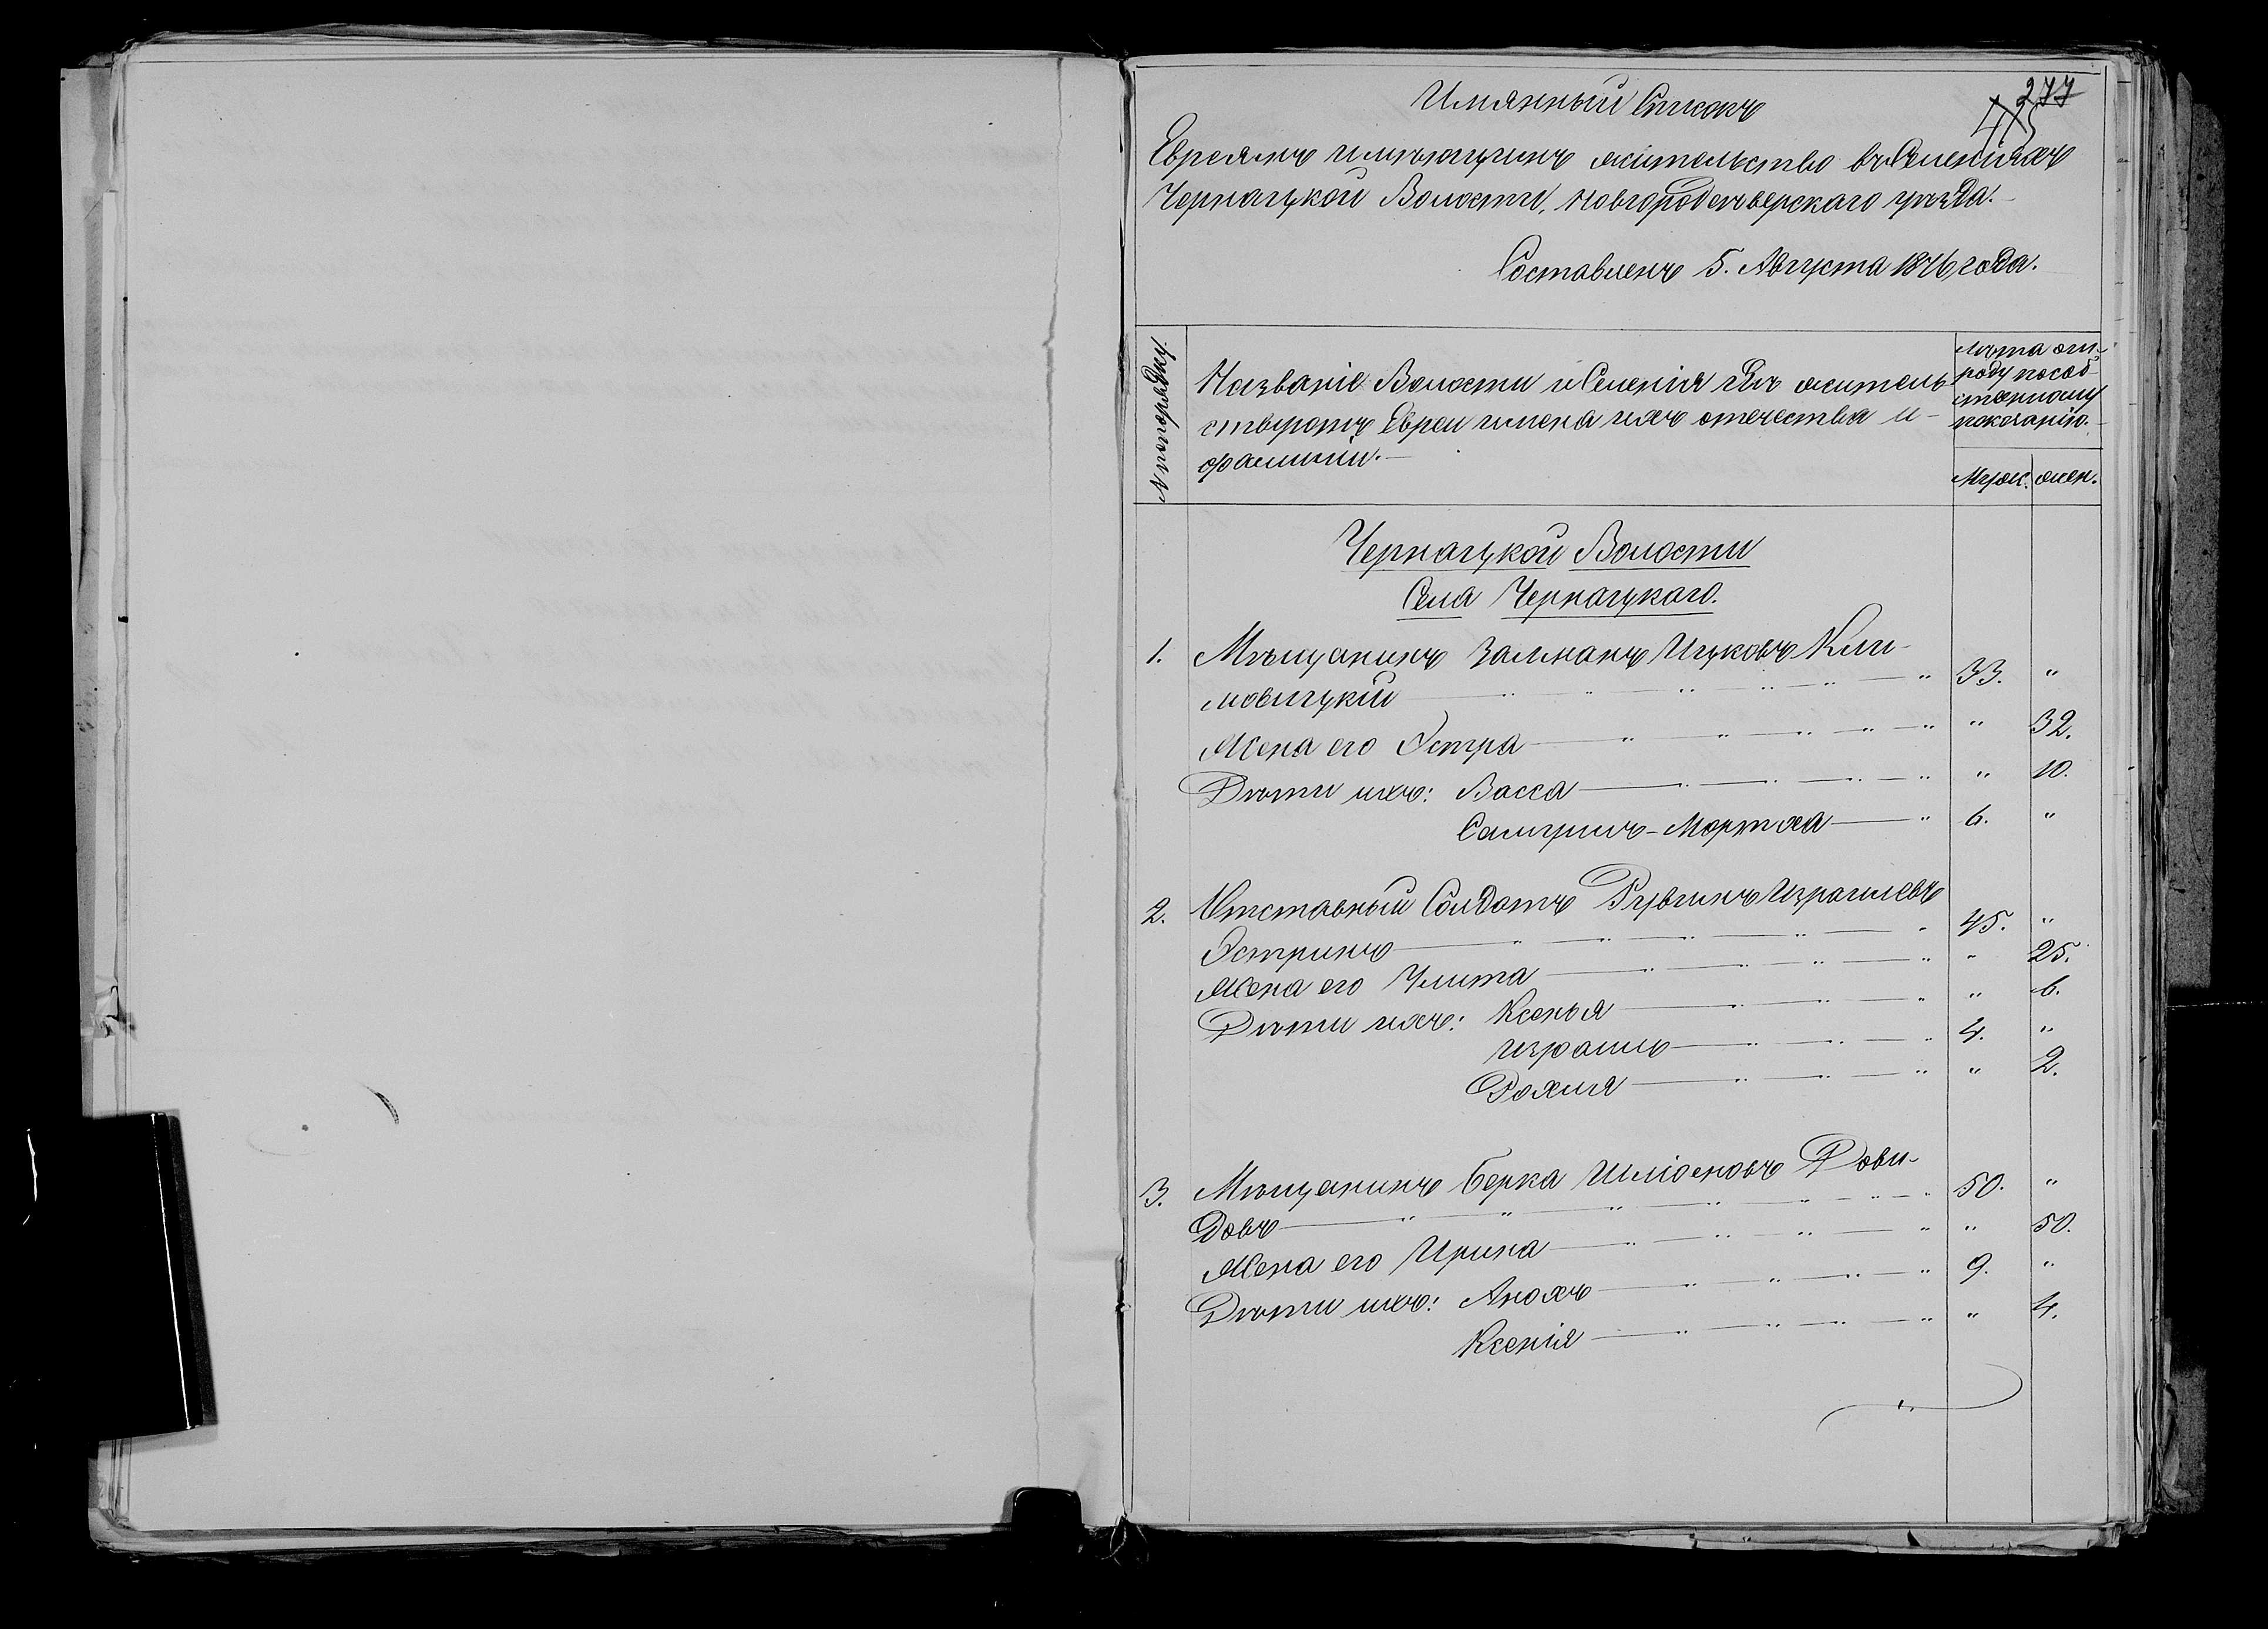 277
415
Имянный Списокъ
Евреямъ имѣющимъ жительство въ Селеніяхъ
Чернацкой Волости, Новгородсѣверскаго уѣзда.
Составленъ 5. Августа 1876 года.
№ по порядку.
Названіе Волости и Селенія гдѣ житель
ствуютъ Евреи имена ихъ отечества и
фамиліи.
Лѣта отъ
роду по соб
ственному
показанію.
Муж. жен.
Чернацкой Волости
Села Чернацкаго.
1. Мѣщанинъ Залманъ Ицковъ Кли-
мовицкій 33. "
Жена его Эстра " 32.
Дѣти ихъ: Васса " 10.
Самуилъ-Мортха 6. "
2. Отставный Солдатъ Рувинъ Израилевъ
Эстринъ 45. "
Жена его Улита " 25.
Дѣти ихъ: Ксенья " 6.
Израиль 4. "
Рохля " 2.
3. Мѣщанинъ Берка Шліомовъ Дави-
довъ 50. "
Жена его Ирина " 50.
Дѣти ихъ: Анохъ 9. "
Ксенія " 4.